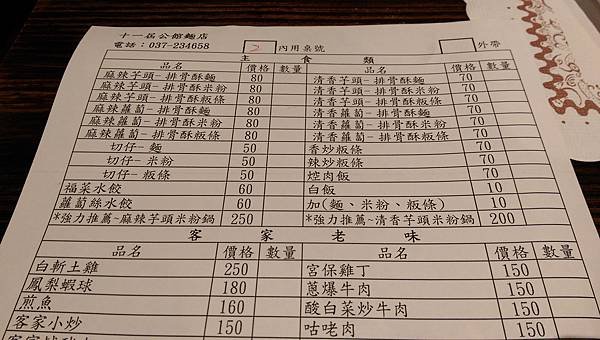 十一屆公館麵店
電話：037-234658 2 內用桌號 外帶
主食類
品名 價格 數量 品名 價格 數量
麻辣芋頭-排骨酥麵 80 清香芋頭-排骨酥麵 70
麻辣芋頭-排骨酥米粉 80 清香芋頭-排骨酥米粉 70
麻辣芋頭-排骨酥粄條 80 清香芋頭-排骨酥粄條 70
麻辣蘿蔔-排骨酥麵 80 清香蘿蔔-排骨酥麵 70
麻辣蘿蔔-排骨酥米粉 80 清香蘿蔔-排骨酥米粉 70
麻辣蘿蔔-排骨酥粄條 80 清香蘿蔔-排骨酥粄條 70
切仔-麵 50 香炒粄條 70
切仔-米粉 50 辣炒粄條 70
切仔-粄條 50 焢肉飯 70
福菜水餃 60 白飯 10
蘿蔔絲水餃 60 加(麵、米粉、粄條) 10
*強力推薦~麻辣芋頭米粉鍋 250 *強力推薦~清香芋頭米粉鍋 200
客家老味
品名 價格 數量 品名 價格 數量
白斬土雞 250 宮保雞丁 150
鳳梨蝦球 180 蔥爆牛肉 150
煎魚 160 酸白菜炒牛肉 150
客家小炒 150 咕老肉 150